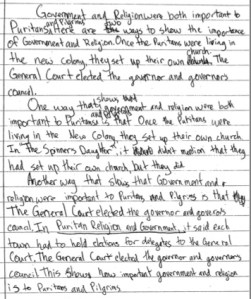 Government and Religion were both important to
Puritans and Pilgrims. Here are two ways to show the importance
of Government and Religion. Once the Puritans were living in
the new colony, they set up their own church. The
General Court elected the governor and governors
council.
One way that shows that government and religion were both
important to Puritans is that Once the Puritans were
living in the New Colony they set up their own church.
In The Spinners Daughter, it didn't motion that they
had set up their own church, but they did
Another way that show that Government and
religion were important to Puritans and Pilgrims is that
The General Court elected the governor and governors
council. In Puritan Religion and Government, it said each
town had to hold elections for delegates to the General
Court. The General Court elected the governor and governors
council. This shows how important government and religion
is to Puritans and Pilgrims